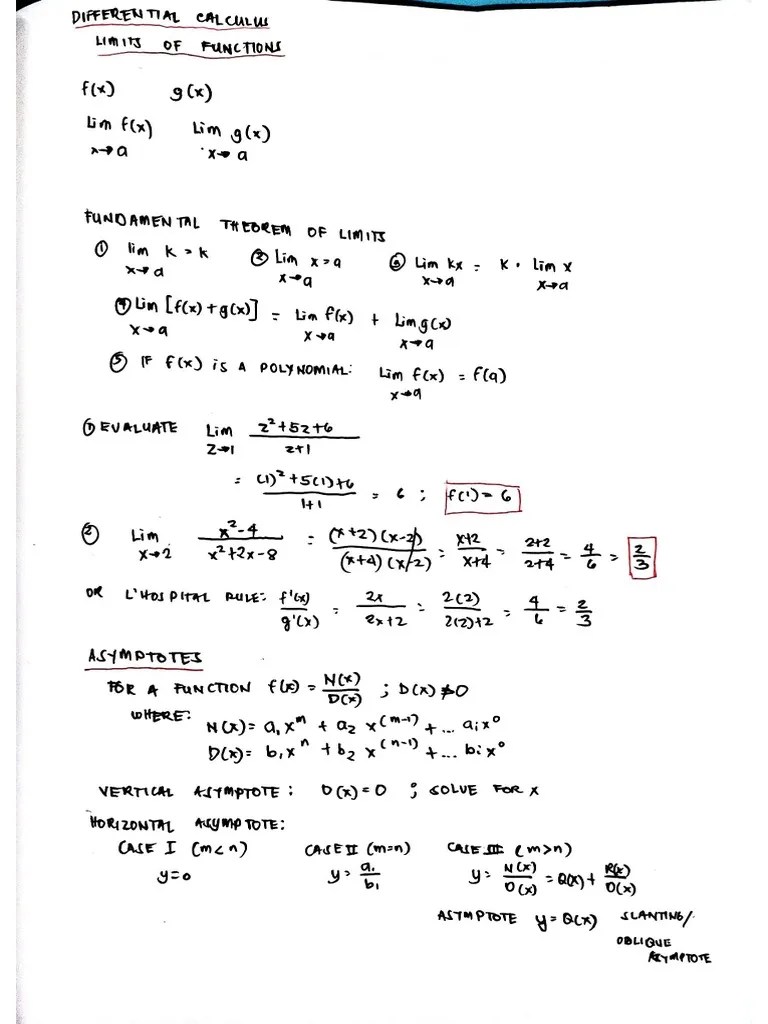 DIFFERENTIAL CALCULUS
LIMITS OF FUNCTIONS
f(x) g(x)
Lim f(x) Lim g(x)
x→a x→a
FUNDAMENTAL THEOREM OF LIMITS
① lim k = k ② Lim x = a ③ Lim kx = k · Lim x
x→a x→a x→a x→a
④ Lim [f(x)+g(x)] = Lim f(x) + Lim g(x)
x→a x→a x→a
⑤ IF f(x) IS A POLYNOMIAL: Lim f(x) = f(a)
x→a
① EVALUATE Lim z²+5z+6 / z+1
z→1
= (1)²+5(1)+6 / 1+1 = 6 ; f(1) = 6
② Lim x²-4 / x²+2x-8 = (x+2)(x-2) / (x+4)(x-2) = x+2 / x+4 = 2+2 / 2+4 = 4/6 = 2/3
x→2
OR L'HOSPITAL RULE: f'(x) / g'(x) = 2x / 2x+2 = 2(2) / 2(2)+2 = 4/6 = 2/3
ASYMPTOTES
FOR A FUNCTION f(x) = N(x) / D(x) ; D(x) ≠ 0
WHERE: N(x) = a₁x^m + a₂ x^(m-1) + ... aᵢx⁰
D(x) = b₁x^n + b₂ x^(n-1) + ... bᵢx⁰
VERTICAL ASYMPTOTE: D(x) = 0 ; SOLVE FOR X
HORIZONTAL ASYMPTOTE:
CASE I (m<n) CASE II (m=n) CASE III (m>n)
y = 0 y = a₁ / b₁ y = N(x) / D(x) = Q(x) + R(x) / D(x)
ASYMPTOTE y = Q(x) SLANTING/
OBLIQUE
ASYMPTOTE